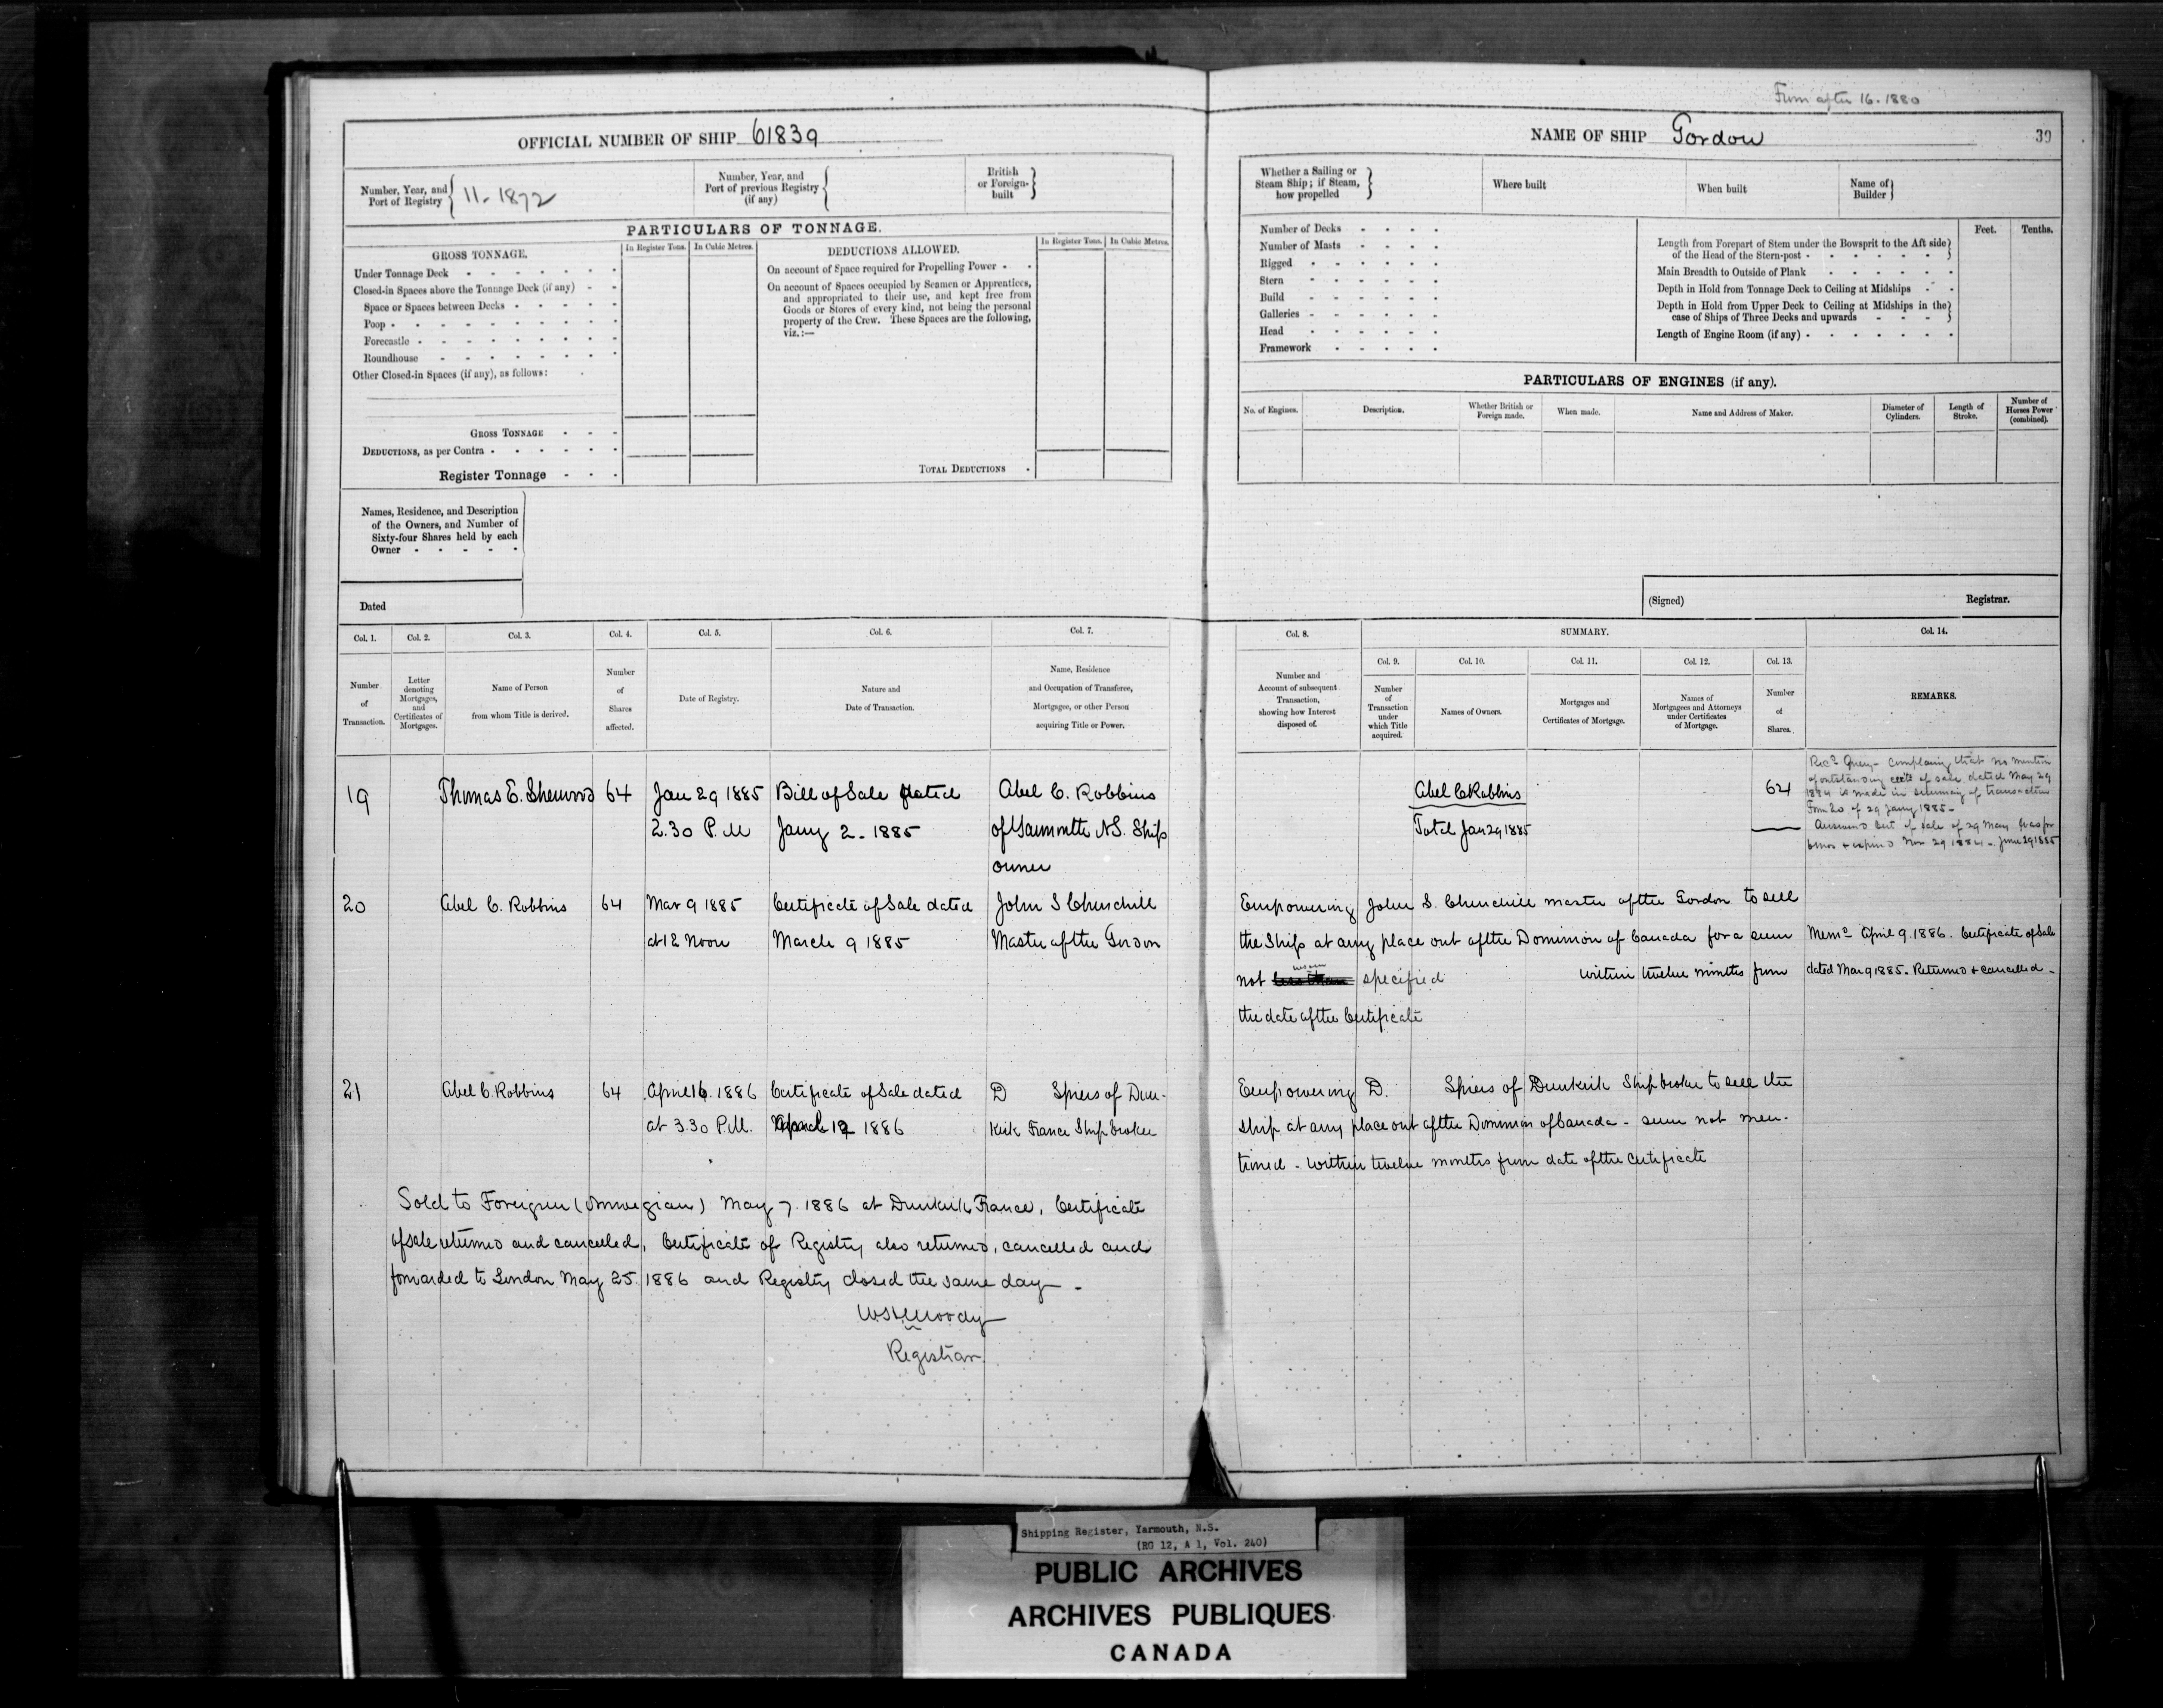 From after 16. 1880
OFFICIAL NUMBER OF SHIP 61839
Number, Year, and Port of Registry 11. 1872
Number, Year, and Port of previous Registry (if any)
British or Foreign-built
PARTICULARS OF TONNAGE.
GROSS TONNAGE.
In Register Tons. In Cubic Metres.
DEDUCTIONS ALLOWED.
In Register Tons. In Cubic Metres.
Under Tonnage Deck
Closed-in Spaces above the Tonnage Deck (if any)
Space or Spaces between Decks
Poop
Forecastle
Roundhouse
Other Closed-in Spaces (if any), as follows:
GROSS TONNAGE
DEDUCTIONS, as per Contra
Register Tonnage
On account of Space required for Propelling Power
On account of Spaces occupied by Seamen or Apprentices,
and appropriated to their use, and kept free from
Goods or Stores of every kind, not being the personal
property of the Crew. These Spaces are the following,
viz.:—
TOTAL DEDUCTIONS
Names, Residence, and Description
of the Owners, and Number of
Sixty-four Shares held by each
Owner
Dated
NAME OF SHIP Gordon
39
Whether a Sailing or Steam Ship; if Steam, how propelled
Where built
When built
Name of Builder
Number of Decks
Number of Masts
Rigged
Stern
Build
Galleries
Head
Framework
Feet. Tenths.
Length from Forepart of Stem under the Bowsprit to the Aft side
of the Head of the Stern-post
Main Breadth to Outside of Plank
Depth in Hold from Tonnage Deck to Ceiling at Midships
Depth in Hold from Upper Deck to Ceiling at Midships in the
case of Ships of Three Decks and upwards
Length of Engine Room (if any)
PARTICULARS OF ENGINES (if any).
No. of Engines.
Description.
Whether British or Foreign made.
When made.
Name and Address of Maker.
Diameter of Cylinders.
Length of Stroke.
Number of Horses Power (combined).
(Signed) Registrar.
Col. 1. Number of Transaction.
Col. 2. Letter denoting Mortgages, and Certificates of Mortgages.
Col. 3. Name of Person from whom Title is derived.
Col. 4. Number of Shares affected.
Col. 5. Date of Registry.
Col. 6. Nature and Date of Transaction.
Col. 7. Name, Residence and Occupation of Transferee, Mortgagee, or other Person acquiring Title or Power.
Col. 8. Number and Account of subsequent Transaction, showing how Interest disposed of.
SUMMARY.
Col. 9. Number of Transaction under which Title acquired.
Col. 10. Names of Owners.
Col. 11. Mortgages and Certificates of Mortgage.
Col. 12. Names of Mortgagees and Attorneys under Certificates of Mortgage.
Col. 13. Number of Shares.
Col. 14. REMARKS.
19 Thomas E. Sherwood 64 Jan 29 1885 Bill of Sale dated Abel C. Robbins
2.30 P.M Jany 2. 1885 of Yarmouth N.S. Ship
owner
Abel C Robbins 64
Total Jan 29 1885
Recd Query - complaining that no mention
of outstanding certe of sale dated May 29
1884 is made in summary of transaction
From 20 of 29 Jany 1885 -
Answered Cert of sale of 29 May was for
6 mos & expired Nov 29 1884 - June 29 1885
20 Abel C. Robbins 64 Mar 9 1885 Certificate of Sale dated John S Churchill
at 12 Noon March 9 1885 Master of the Gordon
Empowering John S. Churchill master of the Gordon to sell
the Ship at any place out of the Dominion of Canada for a sum
not less than specified within twelve months from
the date of the Certificate
Memo April 9. 1886. Certificate of Sale
dated Mar 9 1885. Returned & cancelled -
21 Abel C. Robbins 64 April 16. 1886 Certificate of Sale dated D Spiers of Dun-
at 3.30 P.M. April 12 1886 kirk France Ship broker
Empowering D. Spiers of Dunkirk Ship broker to sell the
ship at any place out of the Dominion of Canada - sum not men-
tioned - within twelve months from date of the certificate
Sold to Foreigner (Norwegian) May 7. 1886 at Dunkirk France. Certificate
of sale returned and cancelled. Certificate of Registry also returned, cancelled and
forwarded to London May 25. 1886 and Registry closed the same day -
W S H Moody
Registrar
Shipping Register, Yarmouth, N.S.
(RG 12, A 1, Vol. 240)
PUBLIC ARCHIVES
ARCHIVES PUBLIQUES
CANADA